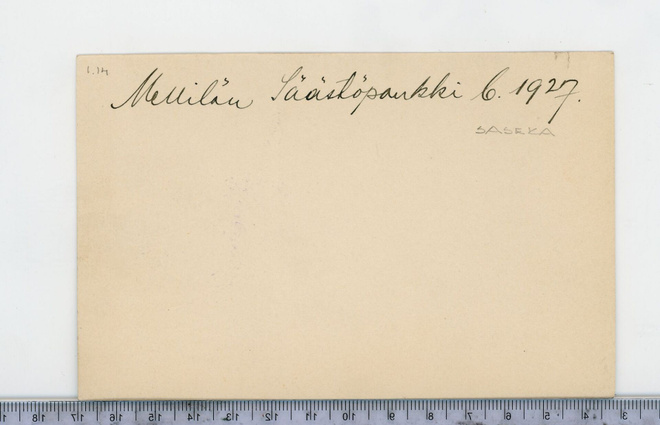 1.14
Mellilän Säästöpankki C. 1927.
SASEKA
18 17 16 15 14 13 12 11 10 9 8 7 6 5 4 3